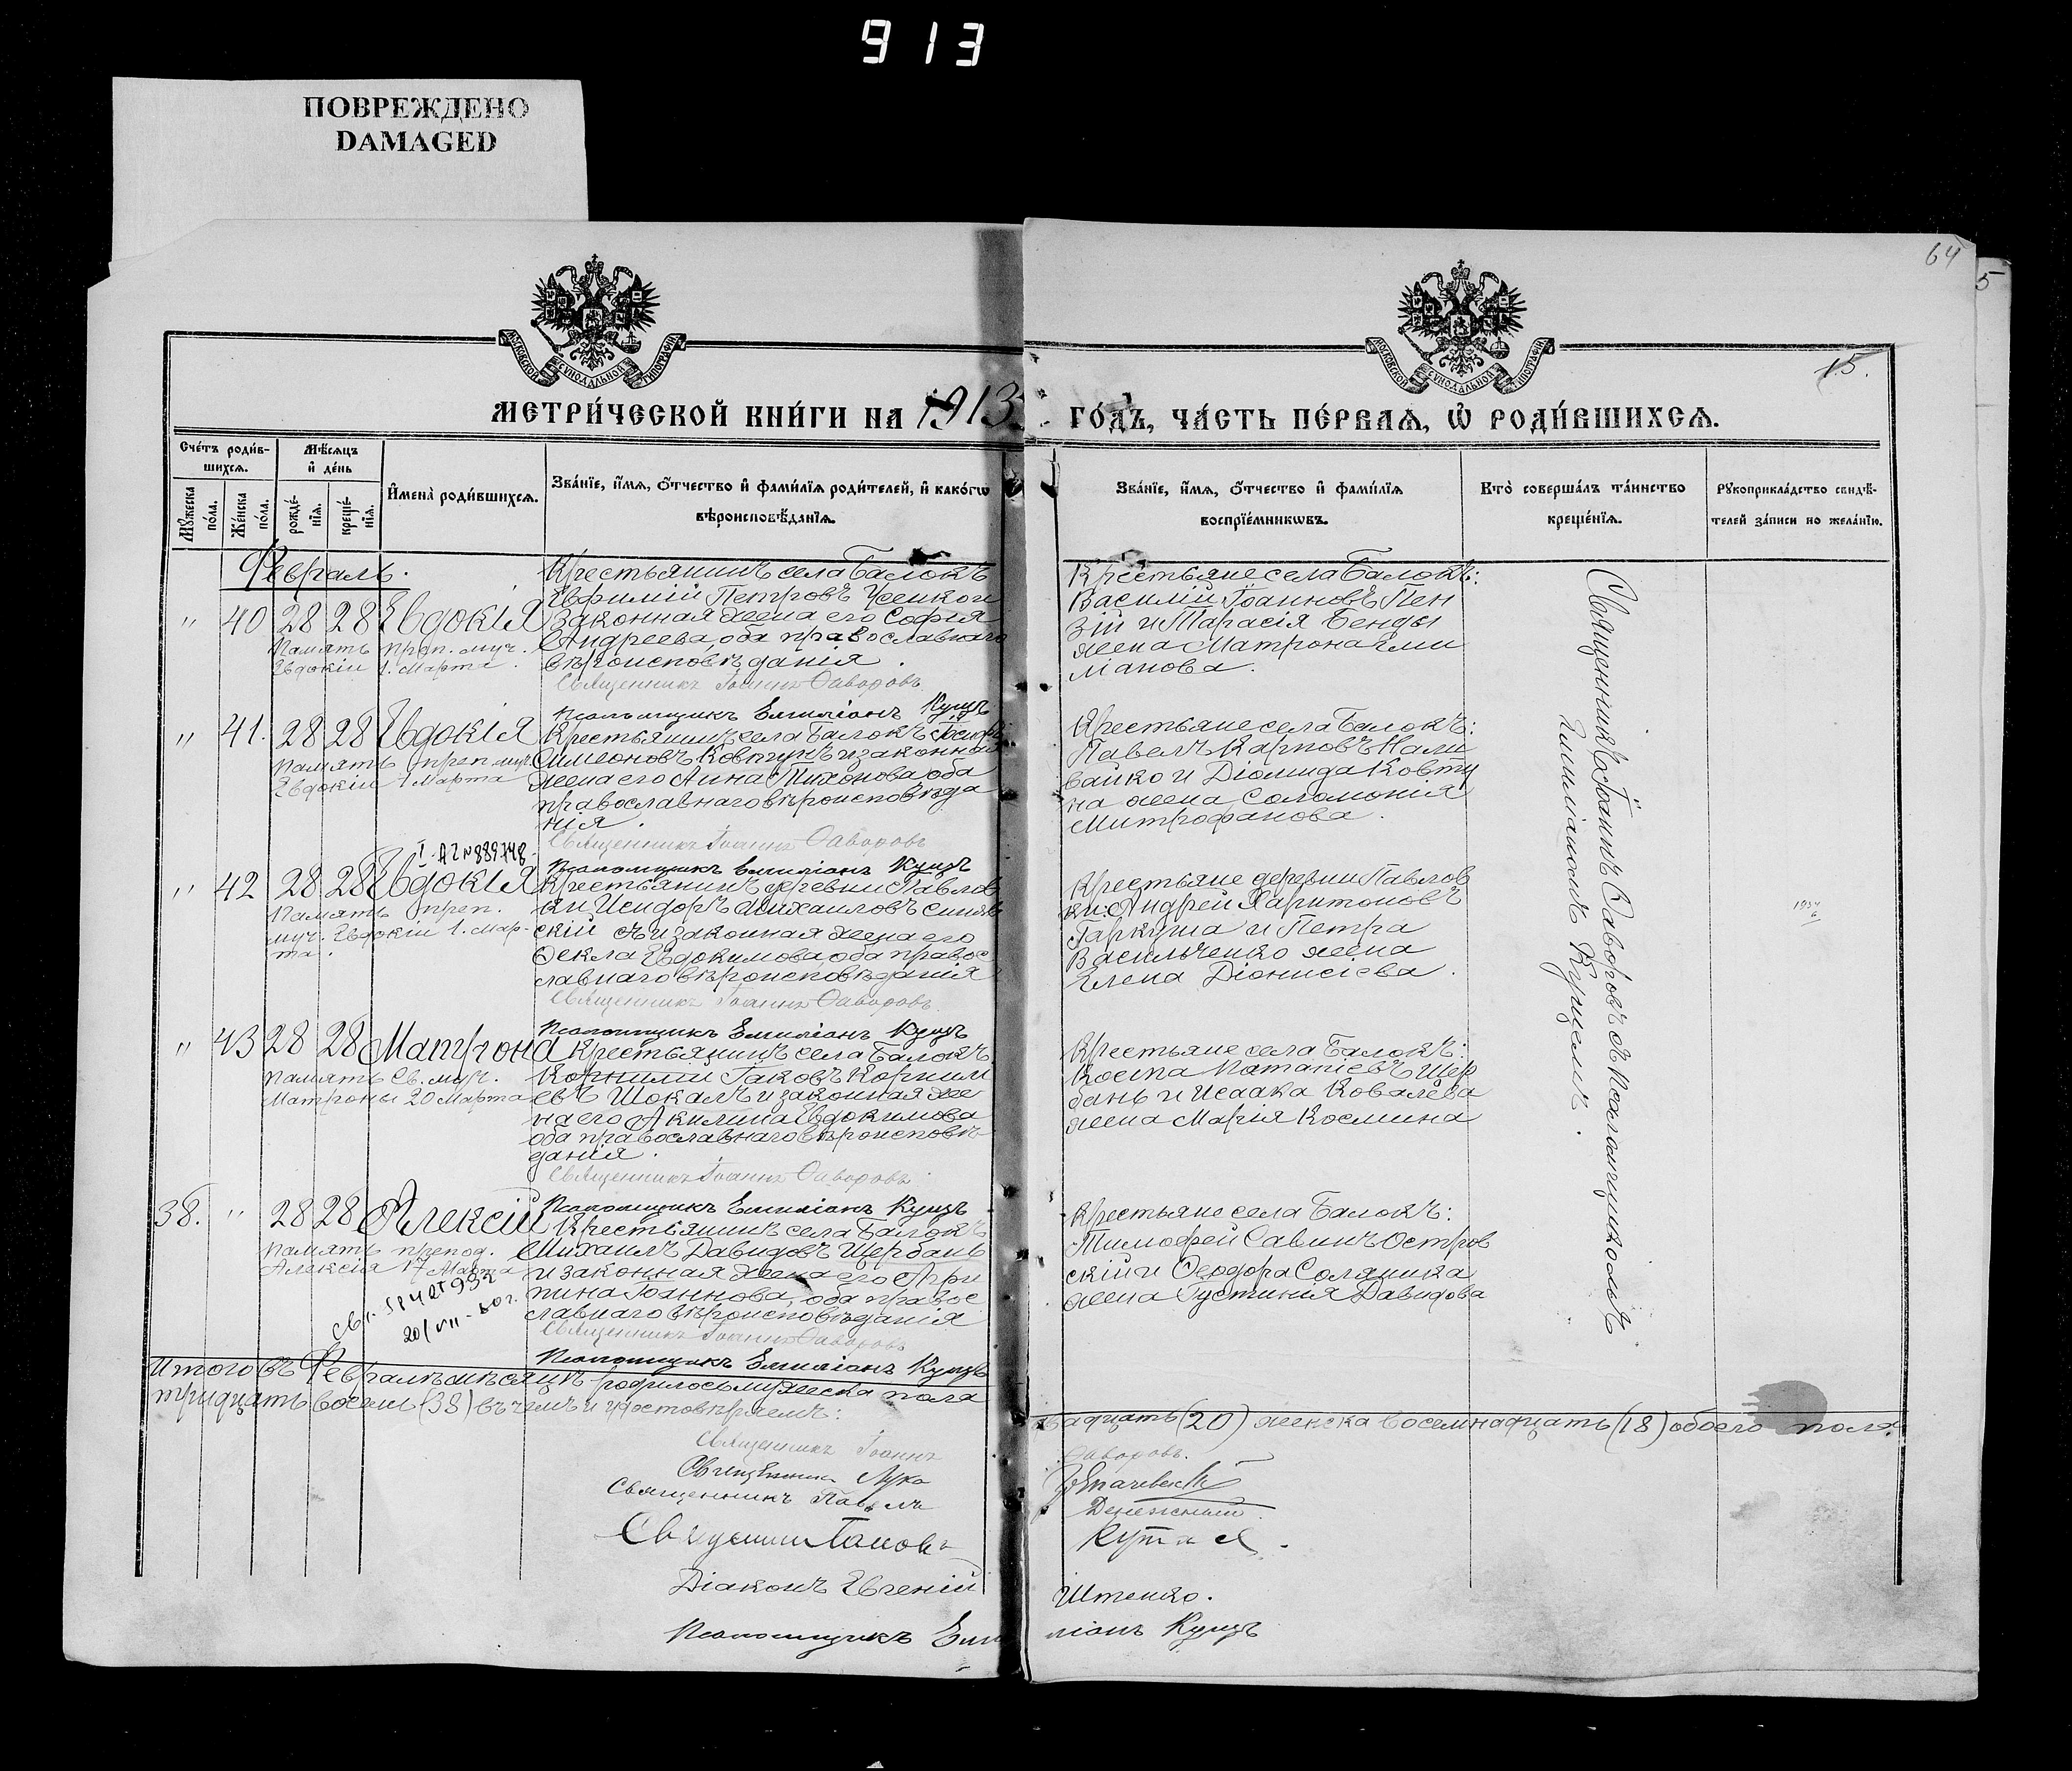 913
ПОВРЕЖДЕНО
DAMAGED
64
5
МОСКОВСКОЙ СѴНОДАЛЬНОЙ ТИПОГРАФІИ
МОСКОВСКОЙ СѴНОДАЛЬНОЙ ТИПОГРАФІИ
15.
МЕТРИ́ЧЕСКОЙ КНИ́ГИ НА 1913 ГО́ДЪ, ЧА́СТЬ ПЕ́РВАѦ, Ѡ҆ РОДИ́ВШИХСѦ.
Сче́тъ роди́в-
шихсѧ.
Мꙋ́жеска
по́ла.
Же́нска
по́ла.
Мѣ́сѧцъ
и҆ де́нь
рожде́-
нїѧ.
креще́-
нїѧ.
И҆мена̀ роди́вшихсѧ.
Зва́нїе, и҆́мѧ, ѻ҆́тчество и҆ фами́лїѧ роди́телей, и҆ како́гѡ
вѣроисповѣ́данїѧ.
Зва́нїе, и҆́мѧ, ѻ҆́тчество и҆ фами́лїѧ
воспрїе́мникѡвъ.
Кто̀ соверша́лъ та́инство
креще́нїѧ.
Рꙋкоприкла́дство свидѣ́-
телей за́писи по жела́нїю.
Февраль.
" 40 28 28 Евдокія
Память преп. муч.
Евдокіи 1. Марта.
Крестьянинъ села Балокъ
Евфимій Петровъ
законная жена его Софія
Андреева, оба православнаго
вѣроисповѣданія.
Священникъ Іоаннъ Фаворовъ
Псаломщикъ Емиліанъ Куцъ
Крестьяне села Балокъ:
Василій Іоанновъ Пен
зій и Тарасія Бенды
жена Матрона Еми
ліанова.
" 41. 28 28 Евдокія
Память преп. муч.
Евдокіи 1 Марта
Крестьянинъ села Балокъ Іосифъ
Симеоновъ Ковтунъ и законная
жена его Анна Тихонова оба
православнаго вѣроисповѣда
нія.
Священникъ Іоаннъ Фаворовъ
Псаломщикъ Емиліанъ Куцъ
Крестьяне села Балокъ:
Павелъ Карповъ Нали
вайко и Діомида Ковту
на жена Соломонія
Митрофанова.
" 42 28 28 Евдокія
Память преп.
муч. Евдокіи 1. Мар-
та.
Крестьянинъ деревни Павлов
ки Исидоръ Михаиловъ Синяв
скій и законная жена его
Ѳекла Евдокимова, оба правос
лавнаго вѣроисповѣданія
Священникъ Іоаннъ Фаворовъ.
Псаломщикъ Емиліанъ Куцъ
Крестьяне деревни Павлов
ки: Андрей Харитоновъ
Гаркуша и Петра
Васильченко жена
Елена Діонисіева.
" 43 28 28 Матрона
Память Св. муч.
Матроны 20 Марта
Крестьянинъ села Балокъ
Іаковъ Корнил
евъ Шокалъ и законная же
на его Акилина Евдокимова
оба православнаго вѣроисповѣ-
данія.
Священникъ Іоаннъ Фаворовъ.
Псаломщикъ Емиліанъ Куцъ
Крестьяне села Балокъ:
Косма Потапіевъ Щер
бань и Исаака Ковалева
жена Марія Космина
38. " 28 28 Алексій
Память препод.
Алексія 17 Марта
20/VII-60г.
Крестьянинъ села Балокъ
Михаилъ Давидовъ Щербань
и законная жена его Агри
пина Іоаннова, оба правос
лавнаго вѣроисповѣданія
Священникъ Іоаннъ Фаворовъ
Псаломщикъ Емиліанъ Куцъ
Крестьяне села Балокъ:
Тимофей Савинъ Остров
скій и Ѳеодора Соляника
жена Густинія Давидова
Священникъ Іоаннъ Фаворовъ съ Псаломщикомъ
Емиліаномъ Куцемъ.
Итого въ Февралѣ мѣсяцѣ родилось мужеска пола двадцать (20) женска восемнадцать (18) обоего пола
тридцать восемь (38) въ чемъ и удостовѣряемъ:
Священникъ Іоаннъ Фаворовъ.
Священникъ Лука
Священникъ Павелъ
Діаконъ Евгеній Штенко.
Псаломщикъ Емиліанъ Куцъ